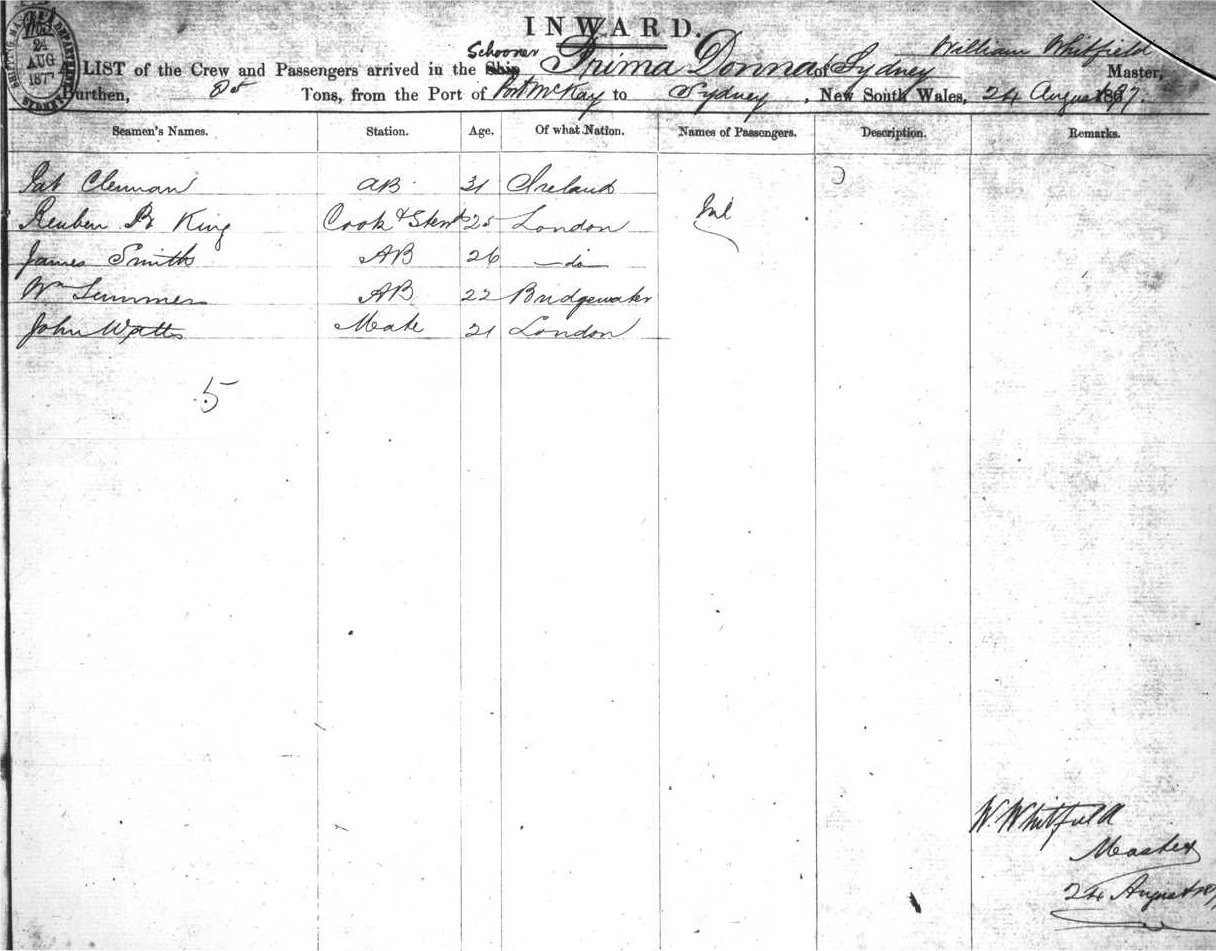 INWARD.
William Whitfield
Schooner
LIST of the Crew and Passengers arrived in the Ship Prima Donna of Sydney Master,
Burthen, Tons, from the Port of Port McKay to Sydney, New South Wales, 24 August 187
Seamen's Names. Station. Age. Of what Nation. Names of Passengers. Description. Remarks.
Pat AB 31 Ireland
Reuben King Cook & Stewd 25 London Nil
James Smith AB 26 do
Wm AB 22 Bridgewater
John Watts Mate 21 London
5
W. Whitfield
Master
24 August
24
AUG
187